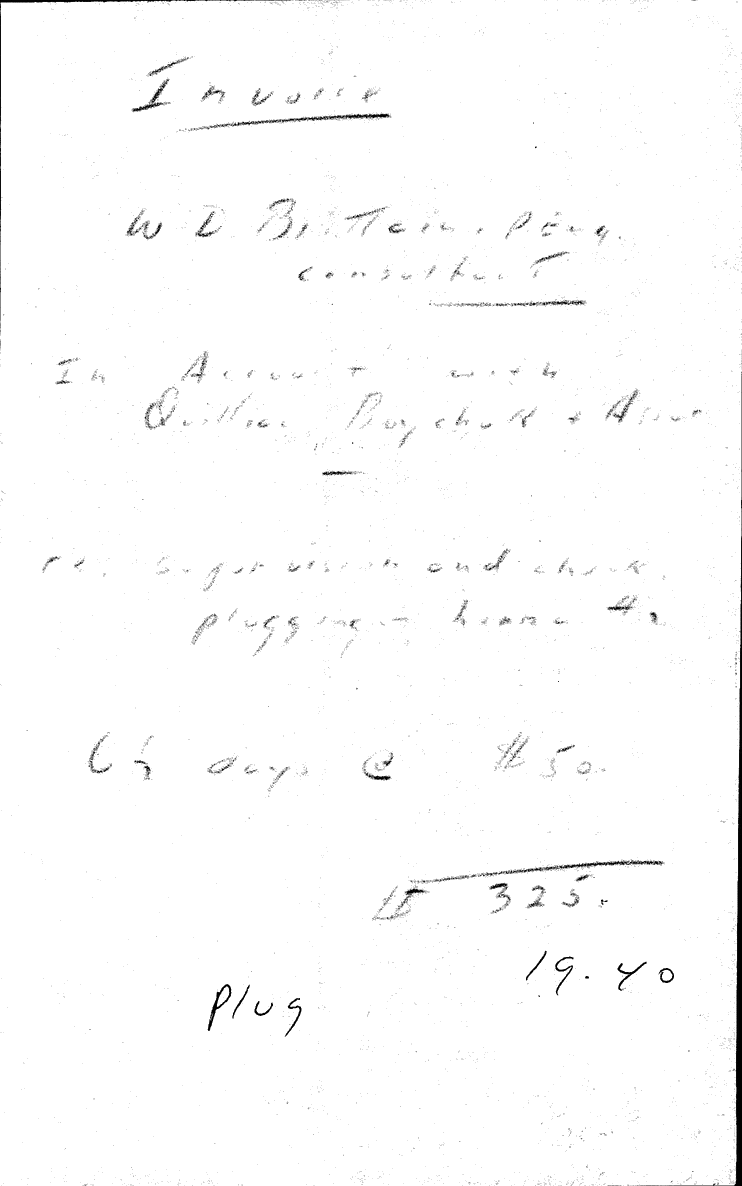 Invoice
W D Brittain, P Eng.
consultant
In Account with
Quillian, Boychuk + Assoc
re. Supervision and check.
plugging - #2
6½ days @ $50.
$ 325.
19.40
Plug